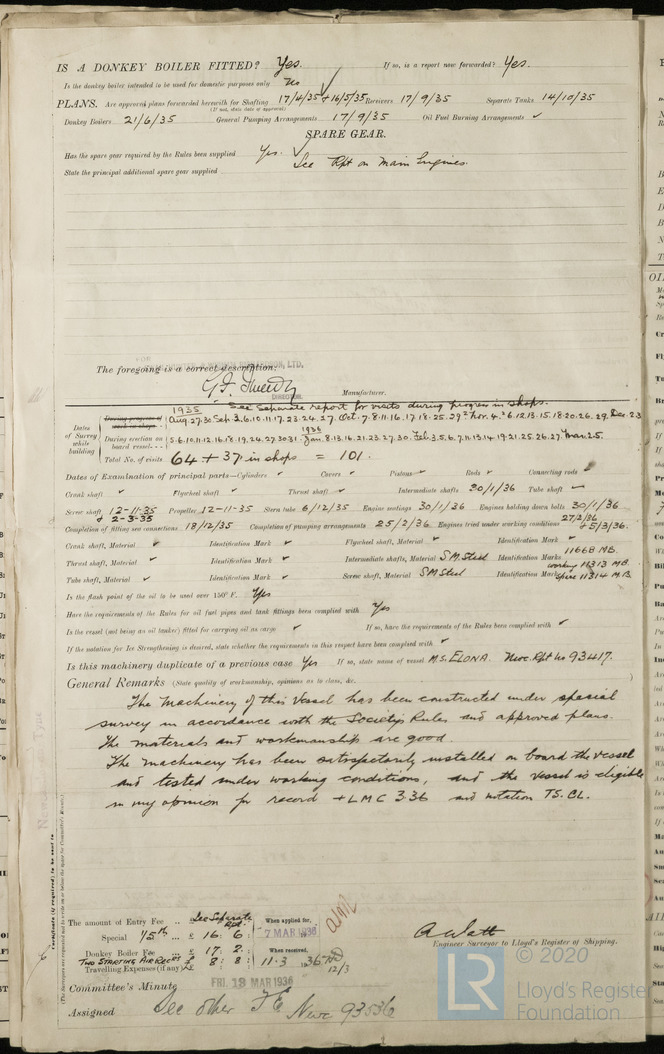 IS A DONKEY BOILER FITTED? Yes. If so, is a report now forwarded? Yes.
Is the donkey boiler intended to be used for domestic purposes only no
PLANS. Are approved plans forwarded herewith for Shafting 17/4/35 + 16/5/35 Receivers 17/9/35 Separate Tanks 14/10/35
(If not, state date of approval)
Donkey Boilers 21/6/35 General Pumping Arrangements 17/9/35 Oil Fuel Burning Arrangements ✓
SPARE GEAR.
Has the spare gear required by the Rules been supplied Yes. ✓ See Rpt on Main Engines.
State the principal additional spare gear supplied
The foregoing is a correct description,
DIRECTOR
Manufacturer.
1935 See Separate report for visits during progress in shops.
Dates of Survey while building
During progress of work in shops
Aug. 27. 30 Sep. 3. 6. 10. 11. 17. 23. 24. 27. Oct. 7. 8. 11. 16. 17. 18. 25. 29. Nov. 4. 6. 12. 13. 15. 18. 20. 26. 29. Dec. 2. 3
1936
During erection on board vessel 5. 6. 10. 11. 12. 16. 18. 19. 24. 27. 30. 31. Jan. 8. 13. 16. 21. 23. 27. 30. Feb. 3. 5. 6. 7. 11. 13. 14. 19. 21. 25. 26. 27. Mar. 2. 5.
Total No. of visits 64 + 37 in shops = 101.
Dates of Examination of principal parts—Cylinders ✓ Covers ✓ Pistons ✓ Rods ✓ Connecting rods ✓
Crank shaft ✓ Flywheel shaft ✓ Thrust shaft ✓ Intermediate shafts 30/1/36 Tube shaft ✓
Screw shaft 12-11-35 Propeller 12-11-35 Stern tube 6/12/35 Engine seatings 30/1/36 Engines holding down bolts 30/1/36
+ 2-3-35 27/2/36
Completion of fitting sea connections 18/12/35 Completion of pumping arrangements 25/2/36 Engines tried under working conditions + 5/3/36.
Crank shaft, Material ✓ Identification Mark ✓ Flywheel shaft, Material ✓ Identification Mark ✓
Thrust shaft, Material ✓ Identification Mark ✓ Intermediate shafts, Material S.M. Steel Identification Marks 11668 MB.
working 11313 MB.
Tube shaft, Material ✓ Identification Mark ✓ Screw shaft, Material SM Steel Identification Mark spare 11314 M.B.
Is the flash point of the oil to be used over 150° F. Yes
Have the requirements of the Rules for oil fuel pipes and tank fittings been complied with Yes
Is the vessel (not being an oil tanker) fitted for carrying oil as cargo ✓ If so, have the requirements of the Rules been complied with ✓
If the notation for Ice Strengthening is desired, state whether the requirements in this respect have been complied with ✓
Is this machinery duplicate of a previous case Yes If so, state name of vessel M.S. ELONA. Nwc. Rpt No 93417.
General Remarks (State quality of workmanship, opinions as to class, &c.
The machinery of this Vessel has been constructed under special
survey in accordance with the Society's Rules and approved plans.
The materials and workmanship are good.
The machinery has been satisfactorily installed on board the vessel
and tested under working conditions, and the vessel is eligible
in my opinion for record + LMC 3.36 and notation TS. CL.
The amount of Entry Fee .. See Separate Rpt. When applied for,
Special 1/5th .. £ 16 : 6 : 7 MAR 1936
Donkey Boiler Fee .. £ 17 : 2 : When received,
TWO STARTING AIR RECRS £ 8 : 8 : 11.3 1936
Travelling Expenses (if any) £ 12/3
A Watt
Engineer Surveyor to Lloyd's Register of Shipping.
Committee's Minute FRI. 13 MAR 1936
Assigned See other F.E. Nwc 93536
© 2020
LR
Lloyd's Register
Foundation